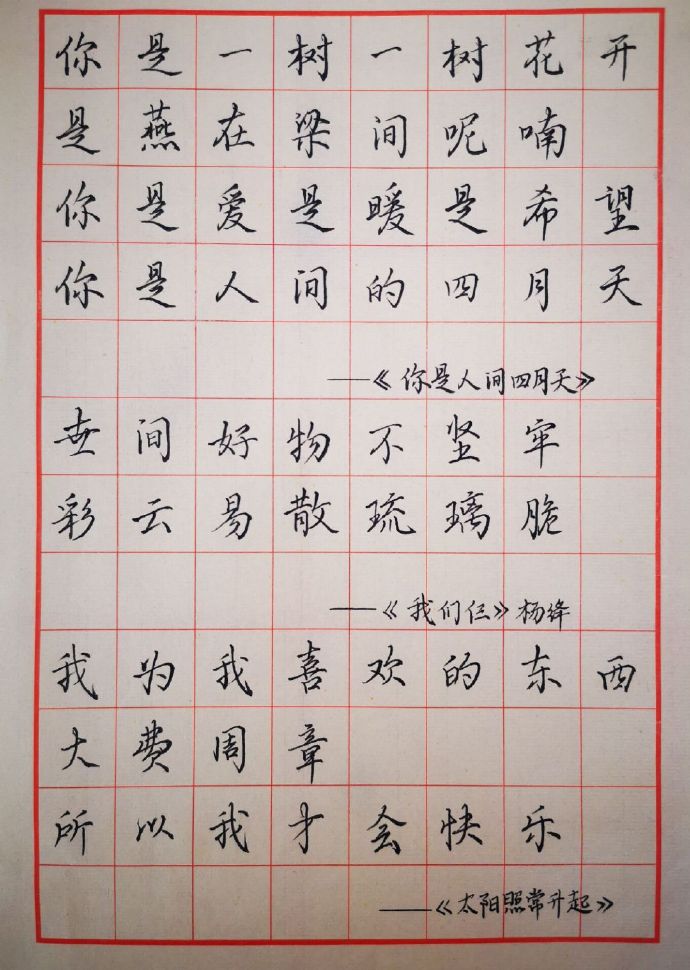 你是一树一树花开
是燕在梁间呢喃
你是爱是暖是希望
你是人间的四月天
——《你是人间四月天》
世间好物不坚牢
彩云易散琉璃脆
——《我们仨》杨绛
我为我喜欢的东西
大费周章
所以我才会快乐
——《太阳照常升起》